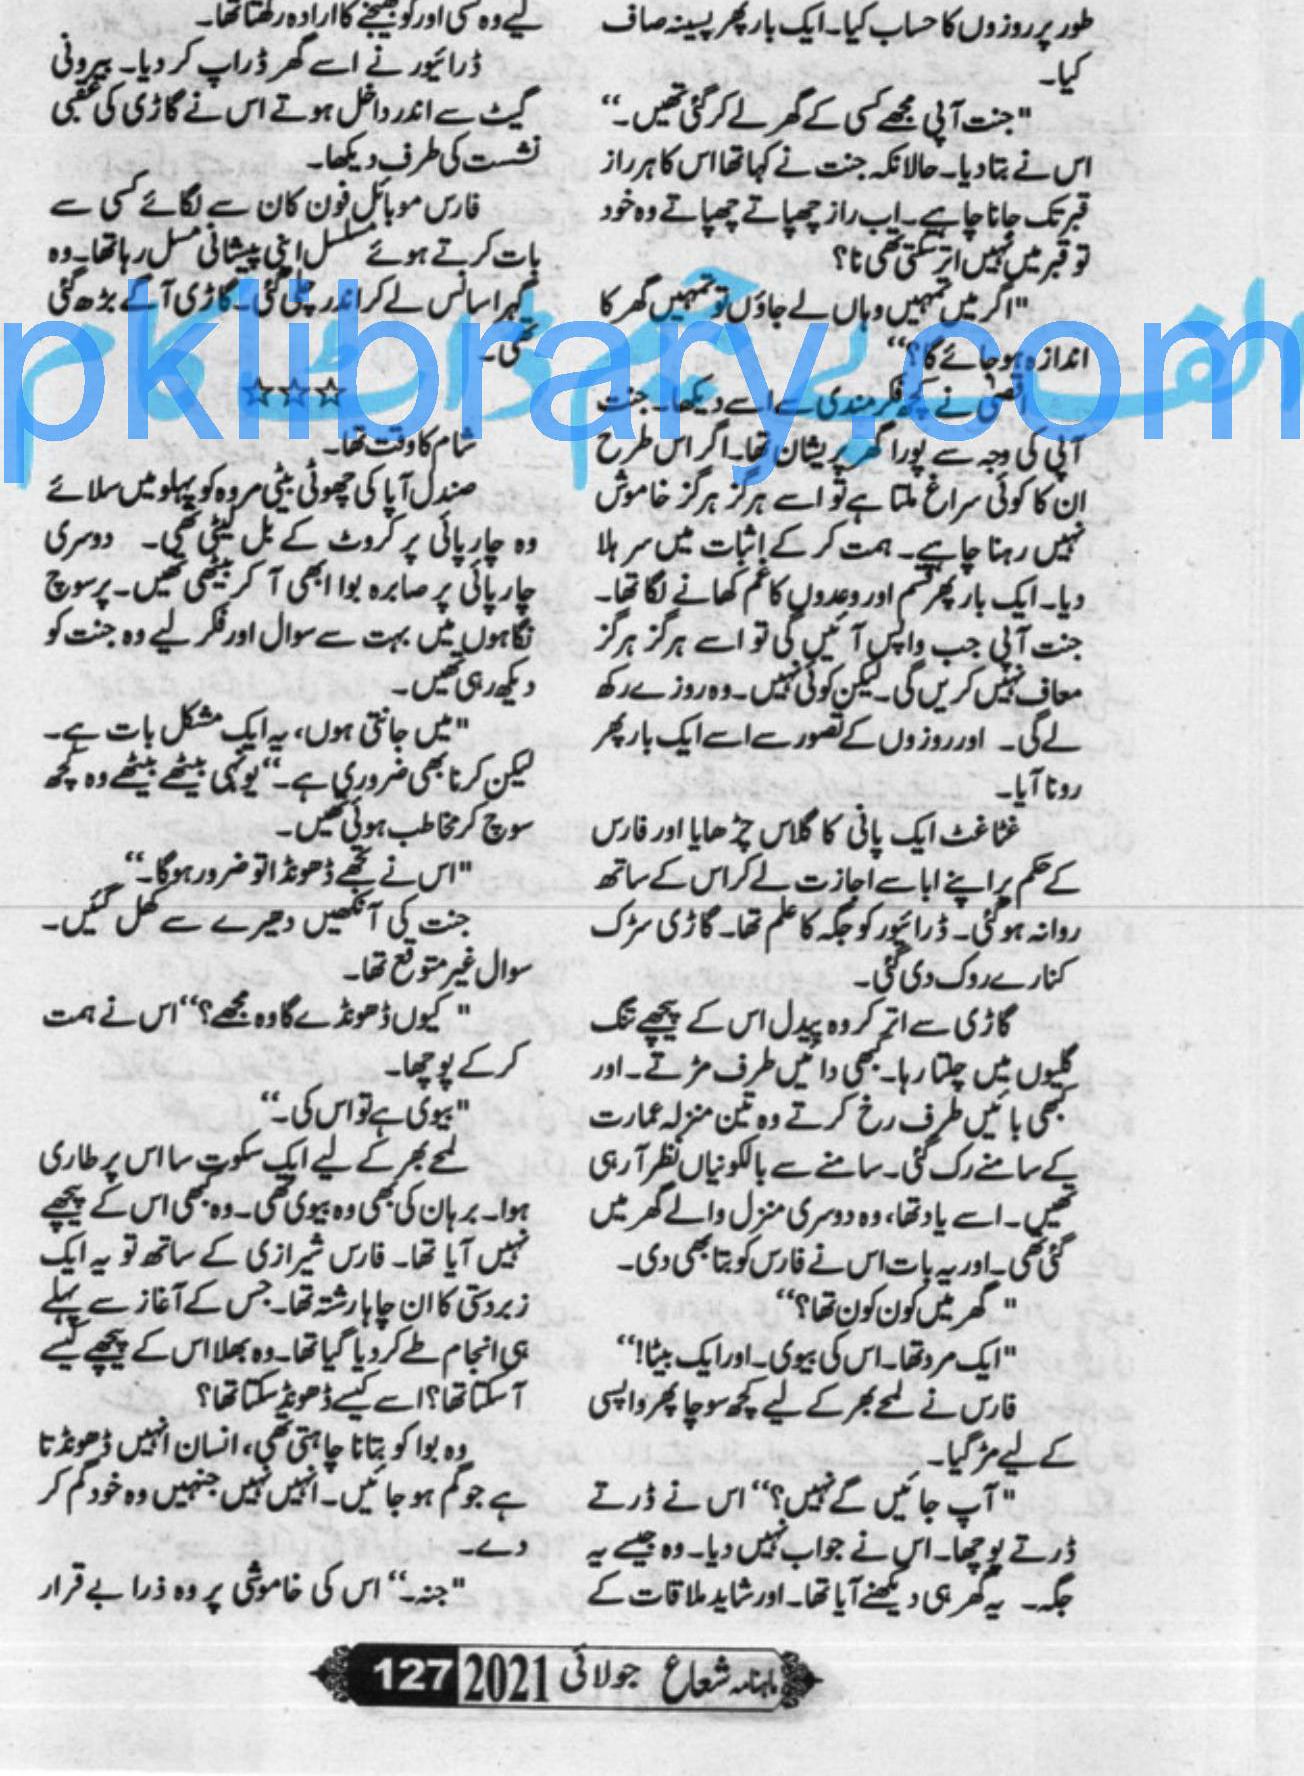 طور پر روزوں کا حساب کیا۔ ایک بار پھر پسینہ صاف
کیا۔
"جنت آپی مجھے کسی کے گھر لے کر گئی تھیں۔"
اس نے بتا دیا۔ حالانکہ جنت نے کہا تھا اس کا ہر راز
قبر تک جانا چاہیے۔ اب راز چھپاتے چھپاتے وہ خود
تو قبر میں نہیں اتر سکتی تھی نا؟
"اگر میں تمہیں وہاں لے جاؤں تو تمہیں گھر کا
اندازہ ہو جائے گا؟"
اقصیٰ نے کچھ فکرمندی سے اسے دیکھا۔ جنت
آپی کی وجہ سے پورا گھر پریشان تھا۔ اگر اس طرح
ان کا کوئی سراغ ملتا ہے تو اسے ہرگز ہرگز خاموش
نہیں رہنا چاہیے۔ ہمت کر کے اثبات میں سر ہلا
دیا۔ ایک بار پھر قسم اور وعدوں کا غم کھانے لگا تھا۔
جنت آپی جب واپس آئیں گی تو اسے ہرگز ہرگز
معاف نہیں کریں گی۔ لیکن کوئی نہیں۔ وہ روزے رکھ
لے گی۔ اور روزوں کے تصور سے اسے ایک بار پھر
رونا آیا۔
غٹاغٹ ایک پانی کا گلاس چڑھایا اور فارس
کے حکم پر اپنے ابا سے اجازت لے کر اس کے ساتھ
روانہ ہو گئی۔ ڈرائیور کو جگہ کا علم تھا۔ گاڑی سڑک
کنارے روک دی گئی۔
گاڑی سے اتر کر وہ پیدل اس کے پیچھے تنگ
گلیوں میں چلتا رہا۔ کبھی دائیں طرف مڑتے۔ اور
کبھی بائیں طرف رخ کرتے وہ تین منزلہ عمارت
کے سامنے رک گئی۔ سامنے سے بالکونیاں نظر آ رہی
تھیں۔ اسے یاد تھا، وہ دوسری منزل والے گھر میں
گئی تھی۔ اور یہ بات اس نے فارس کو بتا بھی دی۔
"گھر میں کون کون تھا؟"
"ایک مرد تھا۔ اس کی بیوی۔ اور ایک بیٹا!"
فارس نے لمحے بھر کے لیے کچھ سوچا پھر واپسی
کے لیے مڑ گیا۔
"آپ جائیں گے نہیں؟" اس نے ڈرتے
ڈرتے پوچھا۔ اس نے جواب نہیں دیا۔ وہ جیسے یہ
جگہ۔ یہ گھر ہی دیکھنے آیا تھا۔ اور شاید ملاقات کے
لیے وہ کسی اور کو بھیجنے کا ارادہ رکھتا تھا۔
ڈرائیور نے اسے گھر ڈراپ کر دیا۔ بیرونی
گیٹ سے اندر داخل ہوتے اس نے گاڑی کی عقبی
نشست کی طرف دیکھا۔
فارس موبائل فون کان سے لگائے کسی سے
بات کرتے ہوئے مسلسل اپنی پیشانی مسل رہا تھا۔ وہ
گہرا سانس لے کر اندر چلی گئی۔ گاڑی آگے بڑھ گئی
تھی۔
☆☆☆
شام کا وقت تھا۔
صندل آپا کی چھوٹی بیٹی مروہ کو پہلو میں سلائے
وہ چارپائی پر کروٹ کے بل لیٹی تھی۔ دوسری
چارپائی پر صابرہ بوا ابھی آ کر بیٹھی تھیں۔ پرسوچ
نگاہوں میں بہت سے سوال اور فکر لیے وہ جنت کو
دیکھ رہی تھیں۔
"میں جانتی ہوں، یہ ایک مشکل بات ہے۔
لیکن کرنا بھی ضروری ہے۔" یونہی بیٹھے بیٹھے وہ کچھ
سوچ کر مخاطب ہوئی تھیں۔
"اس نے تجھے ڈھونڈا تو ضرور ہو گا۔"
جنت کی آنکھیں دھیرے سے کھل گئیں۔
سوال غیر متوقع تھا۔
"کیوں ڈھونڈے گا وہ مجھے؟" اس نے ہمت
کر کے پوچھا۔
"بیوی ہے تو اس کی۔"
لمحے بھر کے لیے ایک سکوت سا اس پر طاری
ہوا۔ برہان کی بھی وہ بیوی تھی۔ وہ کبھی اس کے پیچھے
نہیں آیا تھا۔ فارس شیرازی کے ساتھ تو یہ ایک
زبردستی کا ان چاہا رشتہ تھا۔ جس کے آغاز سے پہلے
ہی انجام طے کر دیا گیا تھا۔ وہ بھلا اس کے پیچھے کیسے
آ سکتا تھا؟ اسے کیسے ڈھونڈ سکتا تھا؟
وہ بوا کو بتانا چاہتی تھی، انسان انہیں ڈھونڈتا
ہے جو گم ہو جائیں۔ انہیں نہیں جنہیں وہ خود گم کر
دے۔
"جنہ۔" اس کی خاموشی پر وہ ذرا بے قرار
ماہنامہ شعاع جولائی 2021 127
pklibrary.com